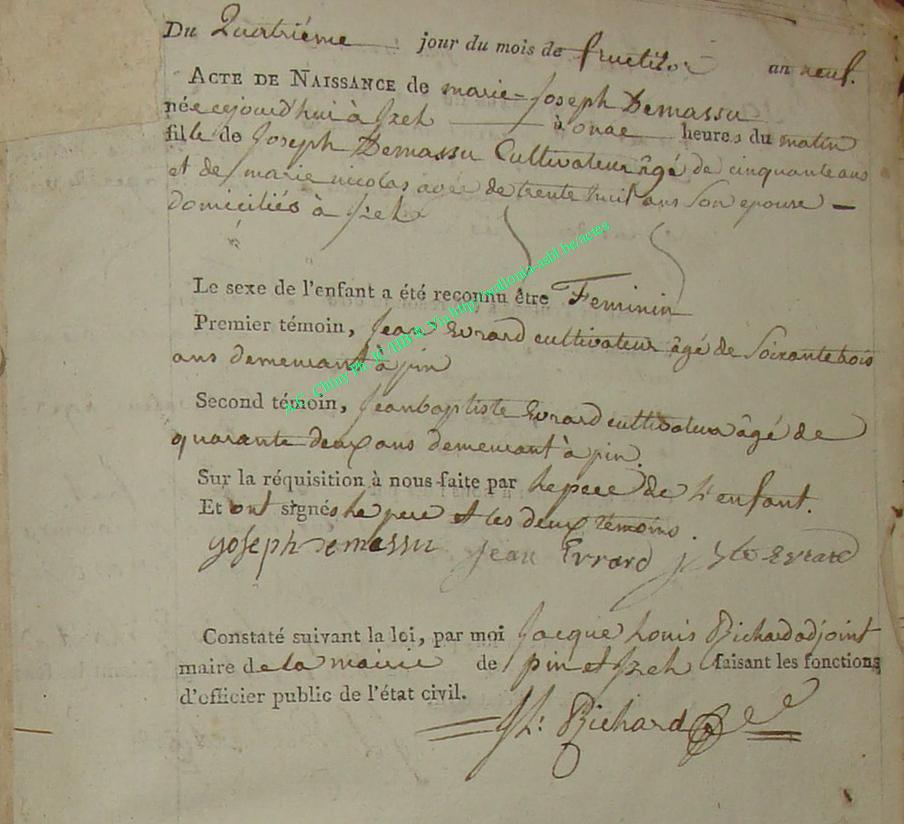 Du Quatriéme jour du mois de fructidor an neuf.
ACTE DE NAISSANCE de marie-Joseph Demassu
née cejourd'hui à Izel à onze heures du matin
fille de Joseph Demassu Cultivateur âgé de cinquante ans
et de marie nicolas agée de trente huit ans Son epouse
domiciliés à Izel
Le sexe de l'enfant a été reconnu être Feminin
Premier témoin, Jean Evrard cultivateur âgé de Soixante trois
ans demeurant à pin
Second témoin, Jean baptiste Evrard cultivateur âgé de
quarante deux ans demeurant à pin.
Sur la réquisition à nous faite par le pere de l'enfant.
Et ont signés le pere et les deux témoins.
joseph demassu Jean Evrard j Bte Evrard
Constaté suivant la loi, par moi Jacque Louis Richard adjoint
maire de la mairie de pin et Izel faisant les fonctions
d'officier public de l'état civil.
JL: Richard
http://wallonia-asbl.be/actes